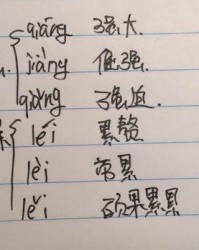 qiáng 强大.
jiàng 倔强.
qiǎng 强迫.
léi 累赘
lèi 劳累
lěi 硕果累累